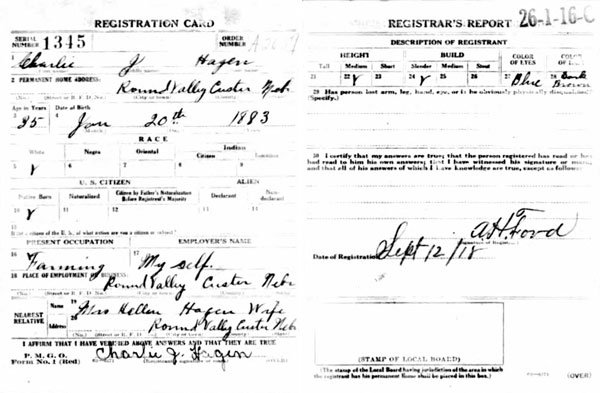 REGISTRATION CARD
SERIAL NUMBER 1345 ORDER NUMBER
1 Charlie J Hagen
2 PERMANENT HOME ADDRESS:
Round Valley Custer Nebr
Age in Years Date of Birth
35 Jan 20th 1883
RACE
White Negro Oriental Indian
Citizen
U. S. CITIZEN ALIEN
Native Born Naturalized Citizen by Father's Naturalization Before Registrant's Majority Declarant Non-declarant
10 11 12 13 14
PRESENT OCCUPATION EMPLOYER'S NAME
Farming My self
18 PLACE OF EMPLOYMENT OR BUSINESS:
Round Valley Custer Nebr
NEAREST RELATIVE Name 19 Mrs Hellen Hagen Wife
Address 20 Round Valley Custer Nebr
I AFFIRM THAT I HAVE VERIFIED ABOVE ANSWERS AND THAT THEY ARE TRUE
P. M. G. O.
Form No. 1 (Red) Charlie J. Hagen
REGISTRAR'S REPORT 26-1-16-C
DESCRIPTION OF REGISTRANT
HEIGHT BUILD COLOR OF EYES COLOR OF
Tall Medium Short Slender Medium Stout
21 22 23 24 25 26 27 Blue 28 Dark Brown
29 Has person lost arm, leg, hand, eye, or is he obviously physically disqualified?
(Specify.)
30 I certify that my answers are true; that the person registered has read or
had read to him his own answers; that I have witnessed his signature or mark,
and that all of his answers of which I have knowledge are true, except as follows:
Date of Registration Sept 12/18
(STAMP OF LOCAL BOARD)
(The stamp of the Local Board having jurisdiction of the area in which
the registrant has his permanent home shall be placed in this box.)
(OVER)